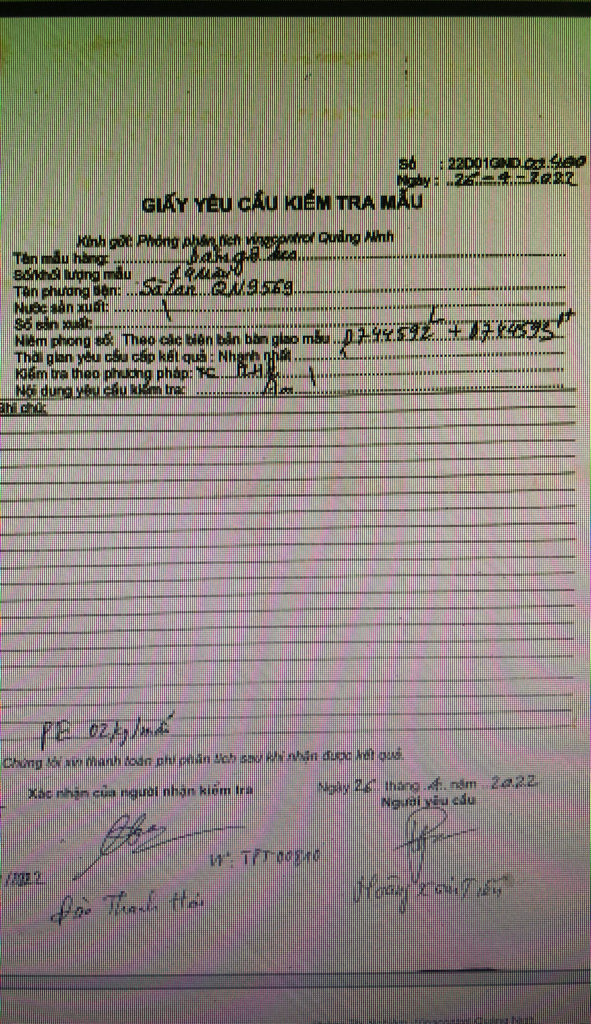 Số : 22D01GND.02.500
Ngày : 26 - 4 - 2022
GIẤY YÊU CẦU KIỂM TRA MẪU
Kính gửi: Phòng phân tích vinacontrol Quảng Ninh
Tên mẫu hàng: Dăm gỗ keo
Số/khối lượng mẫu
Tên phương tiện: Sà lan QN9569
Nước sản xuất:
Số sản xuất:
Niêm phong số: Theo các biên bản bàn giao mẫu 0744592 + 0744595
Thời gian yêu cầu cấp kết quả : Nhanh nhất
Kiểm tra theo phương pháp: TC
Nội dung yêu cầu kiểm tra:
Ghi chú:
PE 02kg/mẫu
Chúng tôi xin thanh toán phí phân tích sau khi nhận được kết quả.
Xác nhận của người nhận kiểm tra
Ngày 26 tháng 4 năm 2022
Người yêu cầu
Nº: TPT00810
/2022
Đào Thanh Hải
Hoàng Xuân Tiến